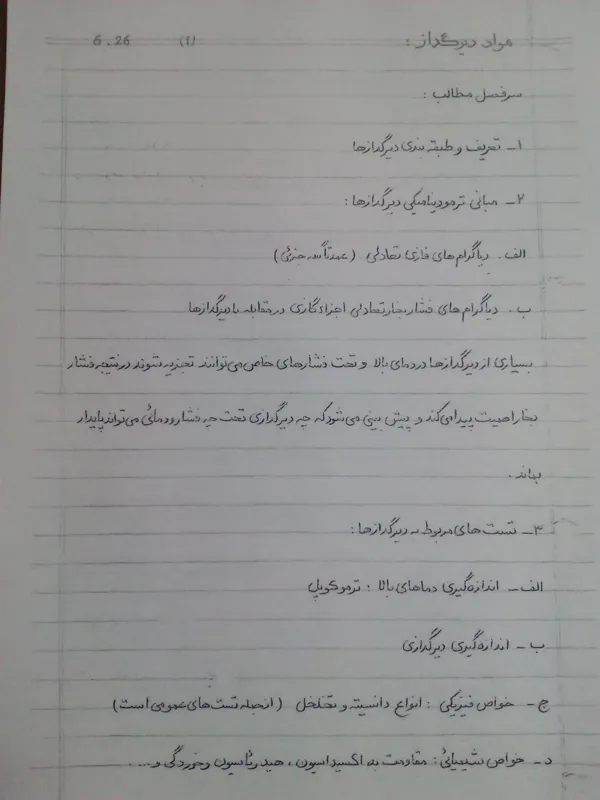 مواد دیرگداز : (۱) 6.26
سرفصل مطالب :
۱- تعریف و طبقه بندی دیرگدازها
۲- مبانی ترمودینامیکی دیرگدازها :
الف. دیاگرام های فازی تعادلی (عمدتاً سه جزئی)
ب. دیاگرام های فشار بخار تعادلی اجزاء گازی در مقابله با دیرگدازها
بسیاری از دیرگدازها در دمای بالا و تحت فشارهای خاص می توانند تجزیه شوند در نتیجه فشار
بخار اهمیت پیدا می کند و پیش بینی می شود که چه دیرگدازی تحت چه فشار و دمائی می تواند پایدار
بماند .
۳- تست های مربوط به دیرگدازها :
الف - اندازه گیری دماهای بالا : ترموکوپل
ب - اندازه گیری دیرگدازی
ج - خواص فیزیکی : انواع دانسیته و تخلخل (از جمله تست های عمومی است)
د - خواص شیمیائی : مقاومت به اکسیداسیون ، هیدراتاسیون و خوردگی و ....